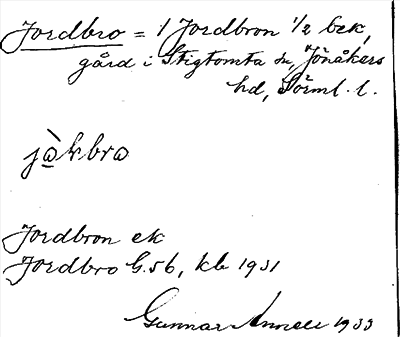 Jordbro = 1 Jordbron 1/2 bek,
gård i Stigtomta sn, Jönåkers
hd, Sörml. l.
jàkbra
Jordbron ek
Jordbro G. 56, kb 1931
Gunnar Annell 1933